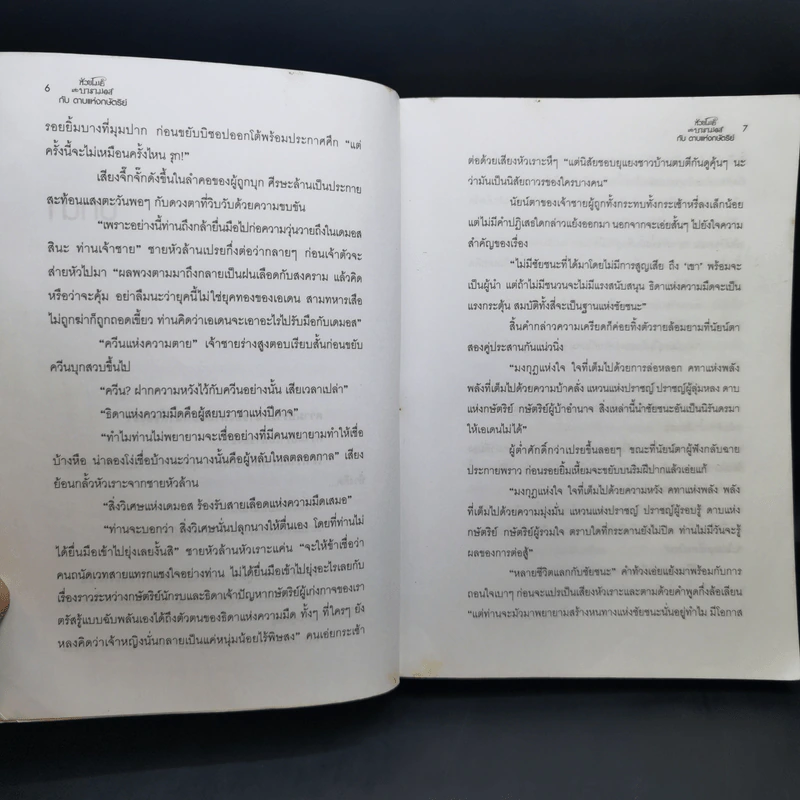 6
หัวขโมย
แห่งบารามอส
กับ ดาบแห่งกษัตริย์
รอยยิ้มบางที่มุมปาก ก่อนขยับบิชอปออกโต้พร้อมประกาศศึก “แต่
ครั้งนี้จะไม่เหมือนครั้งไหน รุก!”
เสียงจิ๊กจั๊กดังขึ้นในลำคอของผู้ถูกบุก ศีรษะล้านเป็นประกาย
สะท้อนแสงตะวันพอๆ กับดวงตาที่วิบวับด้วยความขบขัน
“เพราะอย่างนี้ท่านถึงกล้ายื่นมือไปก่อความวุ่นวายถึงในเดมอส
สินะ ท่านเจ้าชาย” ชายหัวล้านเปรยกึ่งต่อว่ากลายๆ ก่อนเจ้าตัวจะ
ส่ายหัวไปมา “ผลพวงตามมาถึงกลายเป็นฝนเลือดกับสงคราม แล้วคิด
หรือว่าจะคุ้ม อย่าลืมนะว่ายุคนี้ไม่ใช่ยุคทองของเอเดน สามทหารเสือ
ไม่ถูกฆ่าก็ถูกถอดเขี้ยว ท่านคิดว่าเอเดนจะเอาอะไรไปรับมือกับเดมอส”
“ควีนแห่งความตาย” เจ้าชายร่างสูงตอบเรียบสั้นก่อนขยับ
ควีนบุกสวบขึ้นไป
“ควีน? ฝากความหวังไว้กับควีนอย่างนั้น เสียเวลาเปล่า”
“ธิดาแห่งความมืดคือผู้สยบราชาแห่งปีศาจ”
“ทำไมท่านไม่พยายามจะเชื่ออย่างที่มีคนพยายามทำให้เชื่อ
บ้างหือ น่าลองโง่เชื่อบ้างนะว่านางนั้นคือผู้หลับใหลตลอดกาล” เสียง
ย้อนกลั้วหัวเราะจากชายหัวล้าน
“สิ่งวิเศษแห่งเดมอส ร้องรับสายเลือดแห่งความมืดเสมอ”
“ท่านจะบอกว่า สิ่งวิเศษนั่นปลุกนางให้ตื่นเอง โดยที่ท่านไม่
ได้ยื่นมือเข้าไปยุ่งเลยงั้นสิ” ชายหัวล้านหัวเราะแค่น “จะให้ข้าเชื่อว่า
คนถนัดเวทสายแทรกแซงใจอย่างท่าน ไม่ได้ยื่นมือเข้าไปยุ่งอะไรเลยกับ
เรื่องราวระหว่างกษัตริย์นักรบและธิดาเจ้าปัญหากษัตริย์ผู้เก่งกาจของเรา
ตรัสรู้แบบฉับพลันเองได้ถึงตัวตนของธิดาแห่งความมืด ทั้งๆ ที่ใครๆ ยัง
หลงคิดว่าเจ้าหญิงนั่นกลายเป็นแค่หนุ่มน้อยไร้พิษสง” คนเอ่ยกระเซ้า
หัวขโมย
แห่งบารามอส
กับ ดาบแห่งกษัตริย์
7
ต่อด้วยเสียงหัวเราะหึๆ “แต่นิสัยชอบยุแยงชาวบ้านตบตีกันดูคุ้นๆ นะ
ว่ามันเป็นนิสัยถาวรของใครบางคน”
นัยน์ตาของเจ้าชายผู้ถูกทั้งกระทบทั้งกระเซ้าหรี่ลงเล็กน้อย
แต่ไม่มีคำปฏิเสธใดกล่าวแย้งออกมา นอกจากจะเอ่ยสั้นๆ ไปยังใจความ
สำคัญของเรื่อง
“ไม่มีชัยชนะที่ได้มาโดยไม่มีการสูญเสีย ถึง ‘เขา’ พร้อมจะ
เป็นผู้นำ แต่ถ้าไม่มีชนวนจะไม่มีแรงสนับสนุน ธิดาแห่งความมืดจะเป็น
แรงกระตุ้น สมบัติทั้งสี่จะเป็นฐานแห่งชัยชนะ”
สิ้นคำกล่าวความเครียดก็ค่อยทิ้งตัวรายล้อมยามที่นัยน์ตา
สองคู่ประสานกันแน่วนิ่ง
“มงกุฎแห่งใจ ใจที่เต็มไปด้วยการล่อหลอก คทาแห่งพลัง
พลังที่เต็มไปด้วยความบ้าคลั่ง แหวนแห่งปราชญ์ ปราชญ์ผู้ลุ่มหลง ดาบ
แห่งกษัตริย์ กษัตริย์ผู้บ้าอำนาจ สิ่งเหล่านี้นำชัยชนะอันเป็นนิรันดรมา
ให้เอเดนไม่ได้”
ผู้ต่ำศักดิ์กว่าเปรยขึ้นลอยๆ ขณะที่นัยน์ตาผู้ฟังกลับฉาย
ประกายพราว ก่อนรอยยิ้มเหี้ยมจะขยับบนริมฝีปากแล้วเอ่ยแก้
“มงกุฎแห่งใจ ใจที่เต็มไปด้วยความหวัง คทาแห่งพลัง พลัง
ที่เต็มไปด้วยความมุ่งมั่น แหวนแห่งปราชญ์ ปราชญ์ผู้รอบรู้ ดาบแห่ง
กษัตริย์ กษัตริย์ผู้รวมใจ ตราบใดที่กระดานยังไม่ปิด ท่านไม่มีวันจะรู้
ผลของการต่อสู้”
“หลายชีวิตแลกกับชัยชนะ” คำท้วงเอ่ยแย้งมาพร้อมกับการ
ถอนใจเบาๆ ก่อนจะแปรเป็นเสียงหัวเราะและตามด้วยคำพูดกึ่งล้อเลียน
“แต่ท่านจะมัวมาพยายามสร้างหนทางแห่งชัยชนะนั่นอยู่ทำไม มีโอกาส